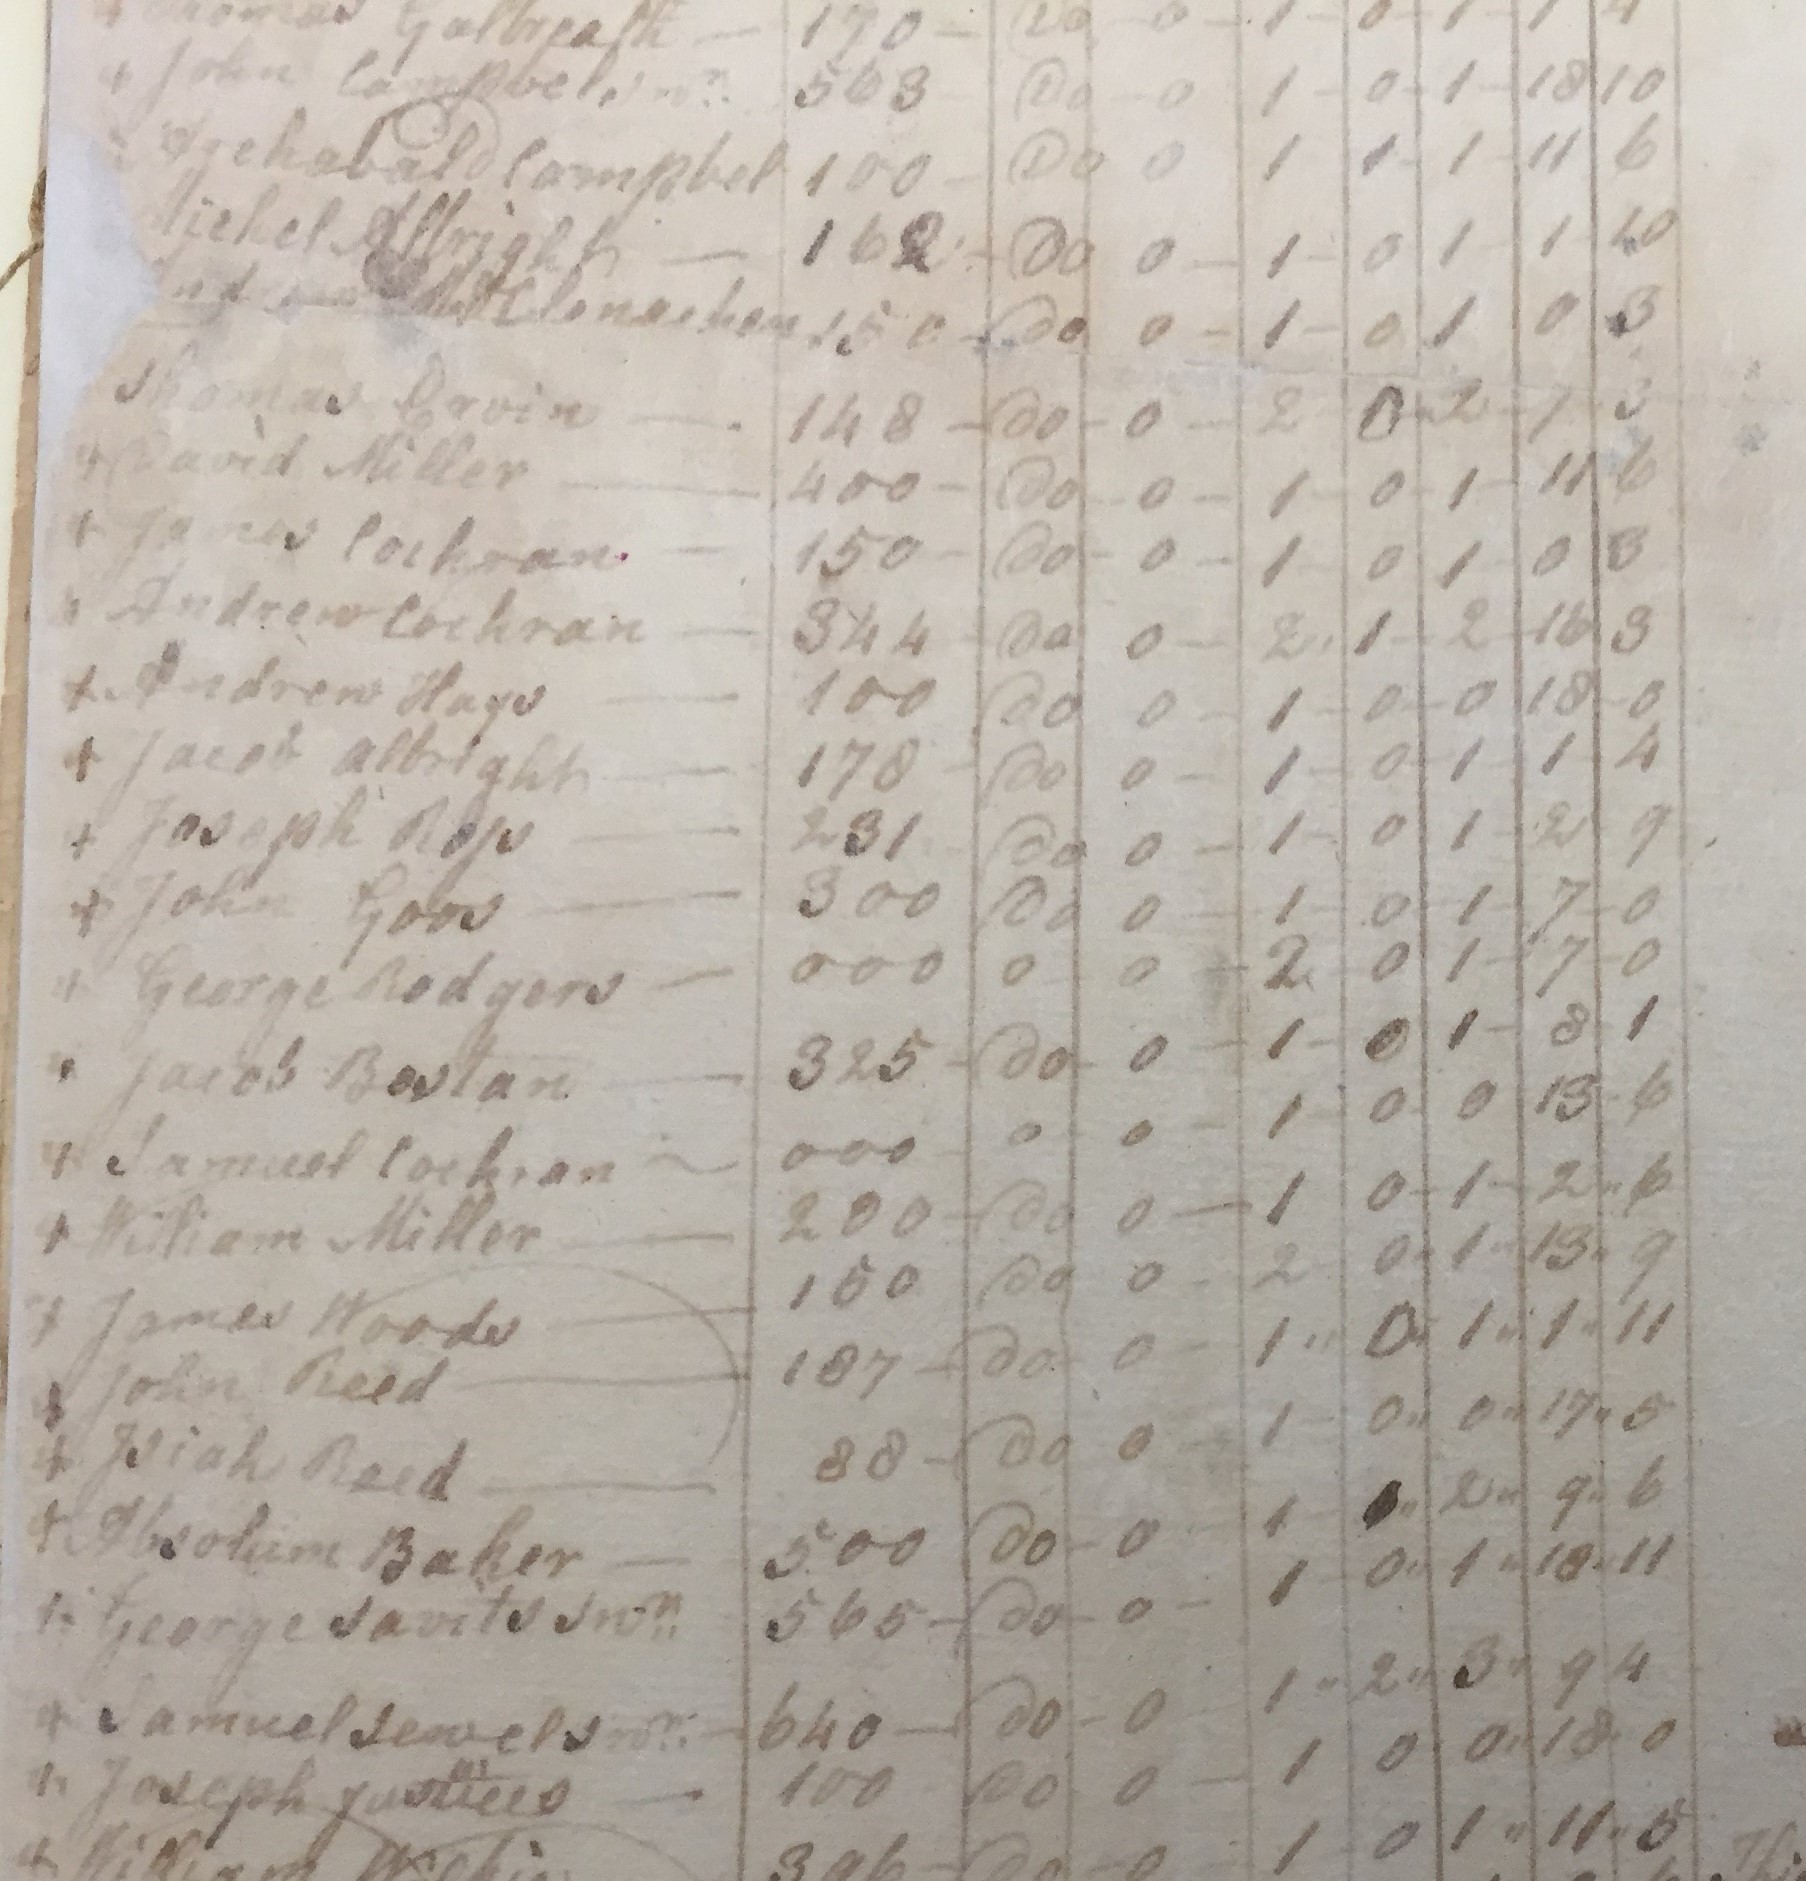 Thomas Galbreath — 170 - Do 0 - 1 - 0 - 1 - 1 4
+ John Campbel snr. 563 Do - 0 1 - 0 - 1 - 18 10
Archabald Campbel 100 - Do 0 1 1 - 1 - 11 6
Michel Albright — 162 - Do 0 - 1 - 0 1 - 1 - 10
McClonachen 150 - Do 0 - 1 - 0 1 0 3
Thomas Ervin — 148 - Do - 0 - 2 0 - 2 - 7 - 3
+ David Miller — 400 - Do 0 - 1 - 0 - 1 - 11 6
+ James Cochran — 150 - Do - 0 - 1 - 0 1 - 0 3
Andrew Cochran — 344 - Do 0 - 2 1 - 2 - 16 3
+ Andrew Hays — 100 Do 0 - 1 - 0 - 0 18 - 0
+ Jacob Albright — 178 - Do 0 - 1 - 0 1 - 1 - 4
+ Joseph Ross — 231 Do 0 - 1 - 0 1 - 2 9
+ John Goos — 300 Do 0 - 1 - 0 - 1 - 7 - 0
+ George Rodgers — 000 0 - 0 - 2 - 0 1 - 7 - 0
Jacob Bostan — 325 - Do - 0 - 1 - 0 1 - 8 - 1
+ Samuel Cochran — 000 - 0 - 0 - 1 - 0 - 0 13 - 6
+ William Miller — 200 - Do 0 — 1 0 - 1 - 2 " 6
+ James Woods — 150 Do 0 - 2 0 " 1 " 13 " 9
+ John Reed — 187 - Do - 0 - 1 " 0 " 1 " 1 " 11
+ Isiah Reed — 88 - Do 0 - 1 - 0 " 0 " 17 " 5
+ Absolum Baker — 500 Do - 0 - 1 - " 2 " 9 " 6
+ George Savits snr. 565 - Do - 0 - 1 - 0 " 1 " 18 " 11
+ Samuel Sewel snr. - 640 - Do - 0 - 1 " 2 " 3 " 9 4
+ Joseph Justices — 100 Do - 0 - 1 0 0 " 18 0
+ William 396 - Do - 0 - 1 - 0 1 " 11 " 5